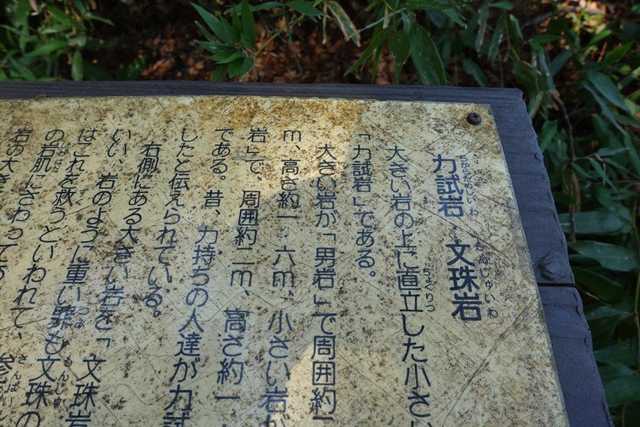 力試岩 文珠岩
ちからためしいわ もんじゅいわ
大きい岩の上に直立した小さい
ちょくりつ
「力試岩」である。
大きい岩が「男岩」で周囲約
m、高さ約一・六m、小さい岩が
岩」で、周囲約二m、高さ約一
である。昔、力持ちの人達が力試
したと伝えられている。
右側にある大きい岩を「文珠岩
いい、岩のように重い罪も文珠の
はこれを救うといわれて、
の岩肌にさわって
岩の大き